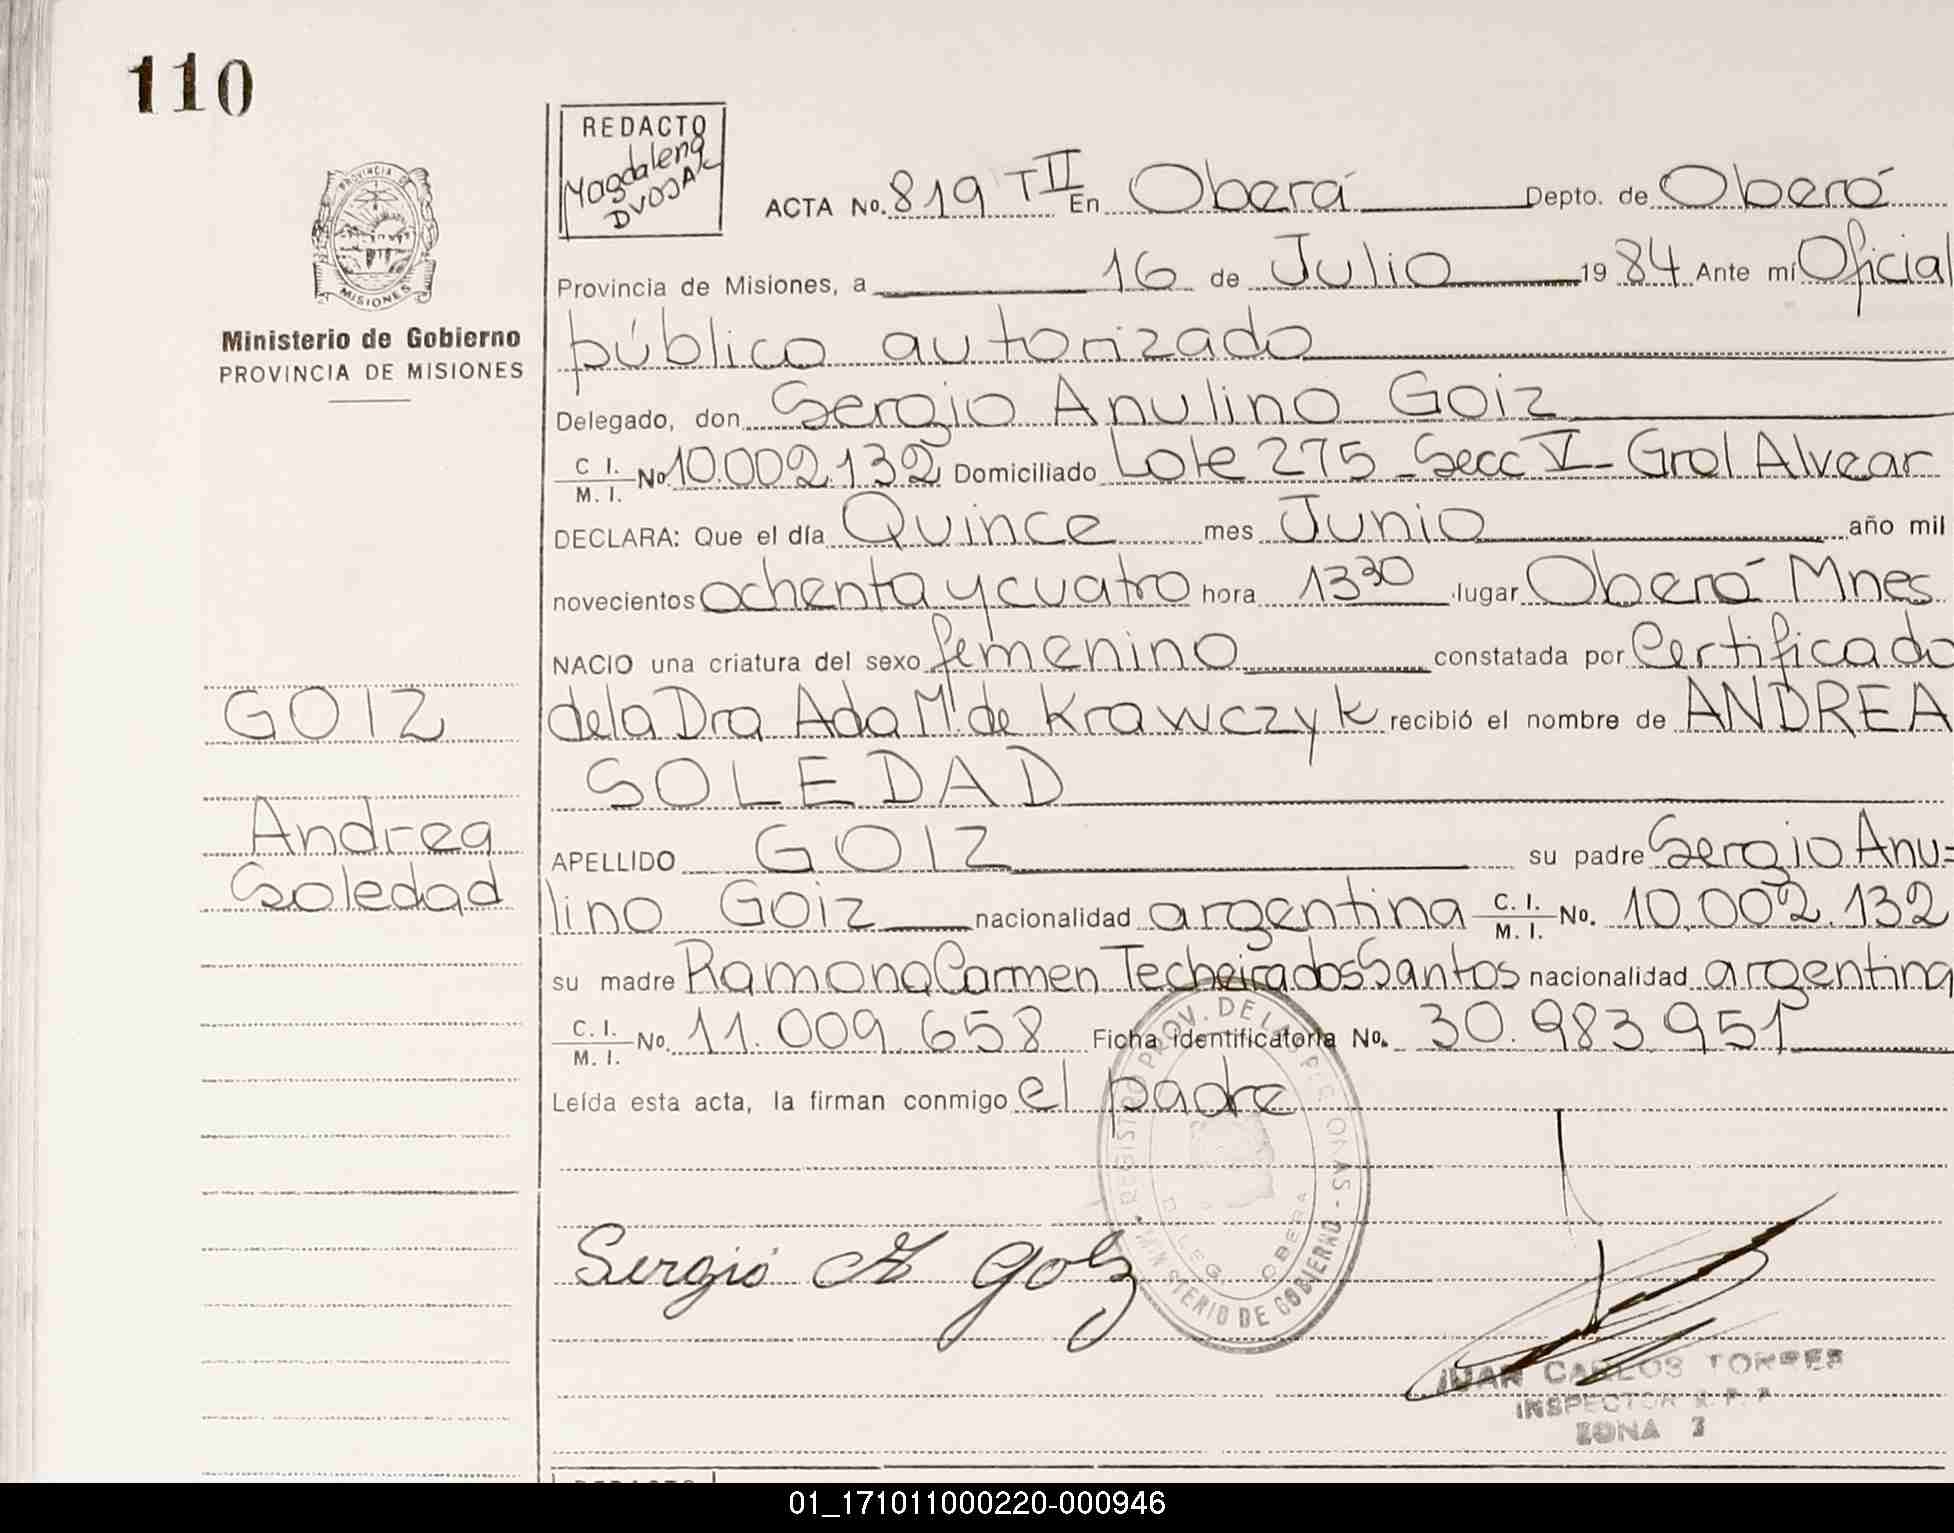 110
PROVINCIA DE
MISIONES
Ministerio de Gobierno
PROVINCIA DE MISIONES
GOIZ
Andrea
Soledad
REDACTO
Magdalena
DVOJAK
ACTA No. 819 TII En Oberá Depto. de Oberá
Provincia de Misiones, a 16 de Julio 1984 Ante mí Oficial
público autorizado
Delegado, don Sergio Anulino Goiz
C I. M. I. No 10.002.132 Domiciliado Lote 275 - Secc V - Gral Alvear
DECLARA: Que el día Quince mes Junio año mil
novecientos ochenta y cuatro hora 13 30 lugar Oberá Mnes
NACIO una criatura del sexo femenino constatada por Certificado
de la Dra Ada Mª de Krawczyk recibió el nombre de ANDREA
SOLEDAD
APELLIDO GOIZ su padre Sergio Anu=
lino Goiz nacionalidad argentina C. I. M. I. No. 10.002.132
su madre Ramona Carmen Techeira dos Santos nacionalidad argentina
C. I. M. I. No. 11.009.658 Ficha identificatoria No. 30.983.951
Leída esta acta, la firman conmigo el padre
REGISTRO PROV. DE LAS PERSONAS - MINISTERIO DE GOBIERNO
DELEG. OBERA
Sergio A Goiz
JUAN CARLOS TORRES
INSPECTOR R. P. P.
ZONA 3
REDACTO
01_171011000220-000946